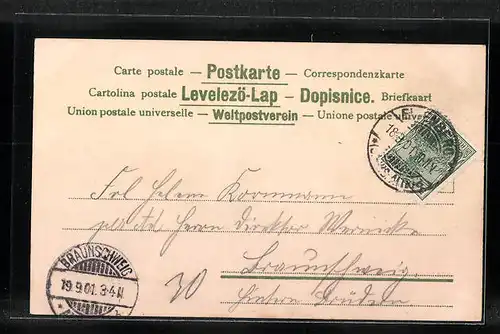 Carte postale — Postkarte — Correspondenzkarte
Cartolina postale Levelezö-Lap — Dopisnice. Briefkaart
Union postale universelle — Weltpostverein — Unione postale univer
Frl Helene Kornmann
Herrn Direktor Wernicke
Braunschweig.
Hintern Brüdern
30
BRAUNSCHWEIG
19.9.01. 3-4 N